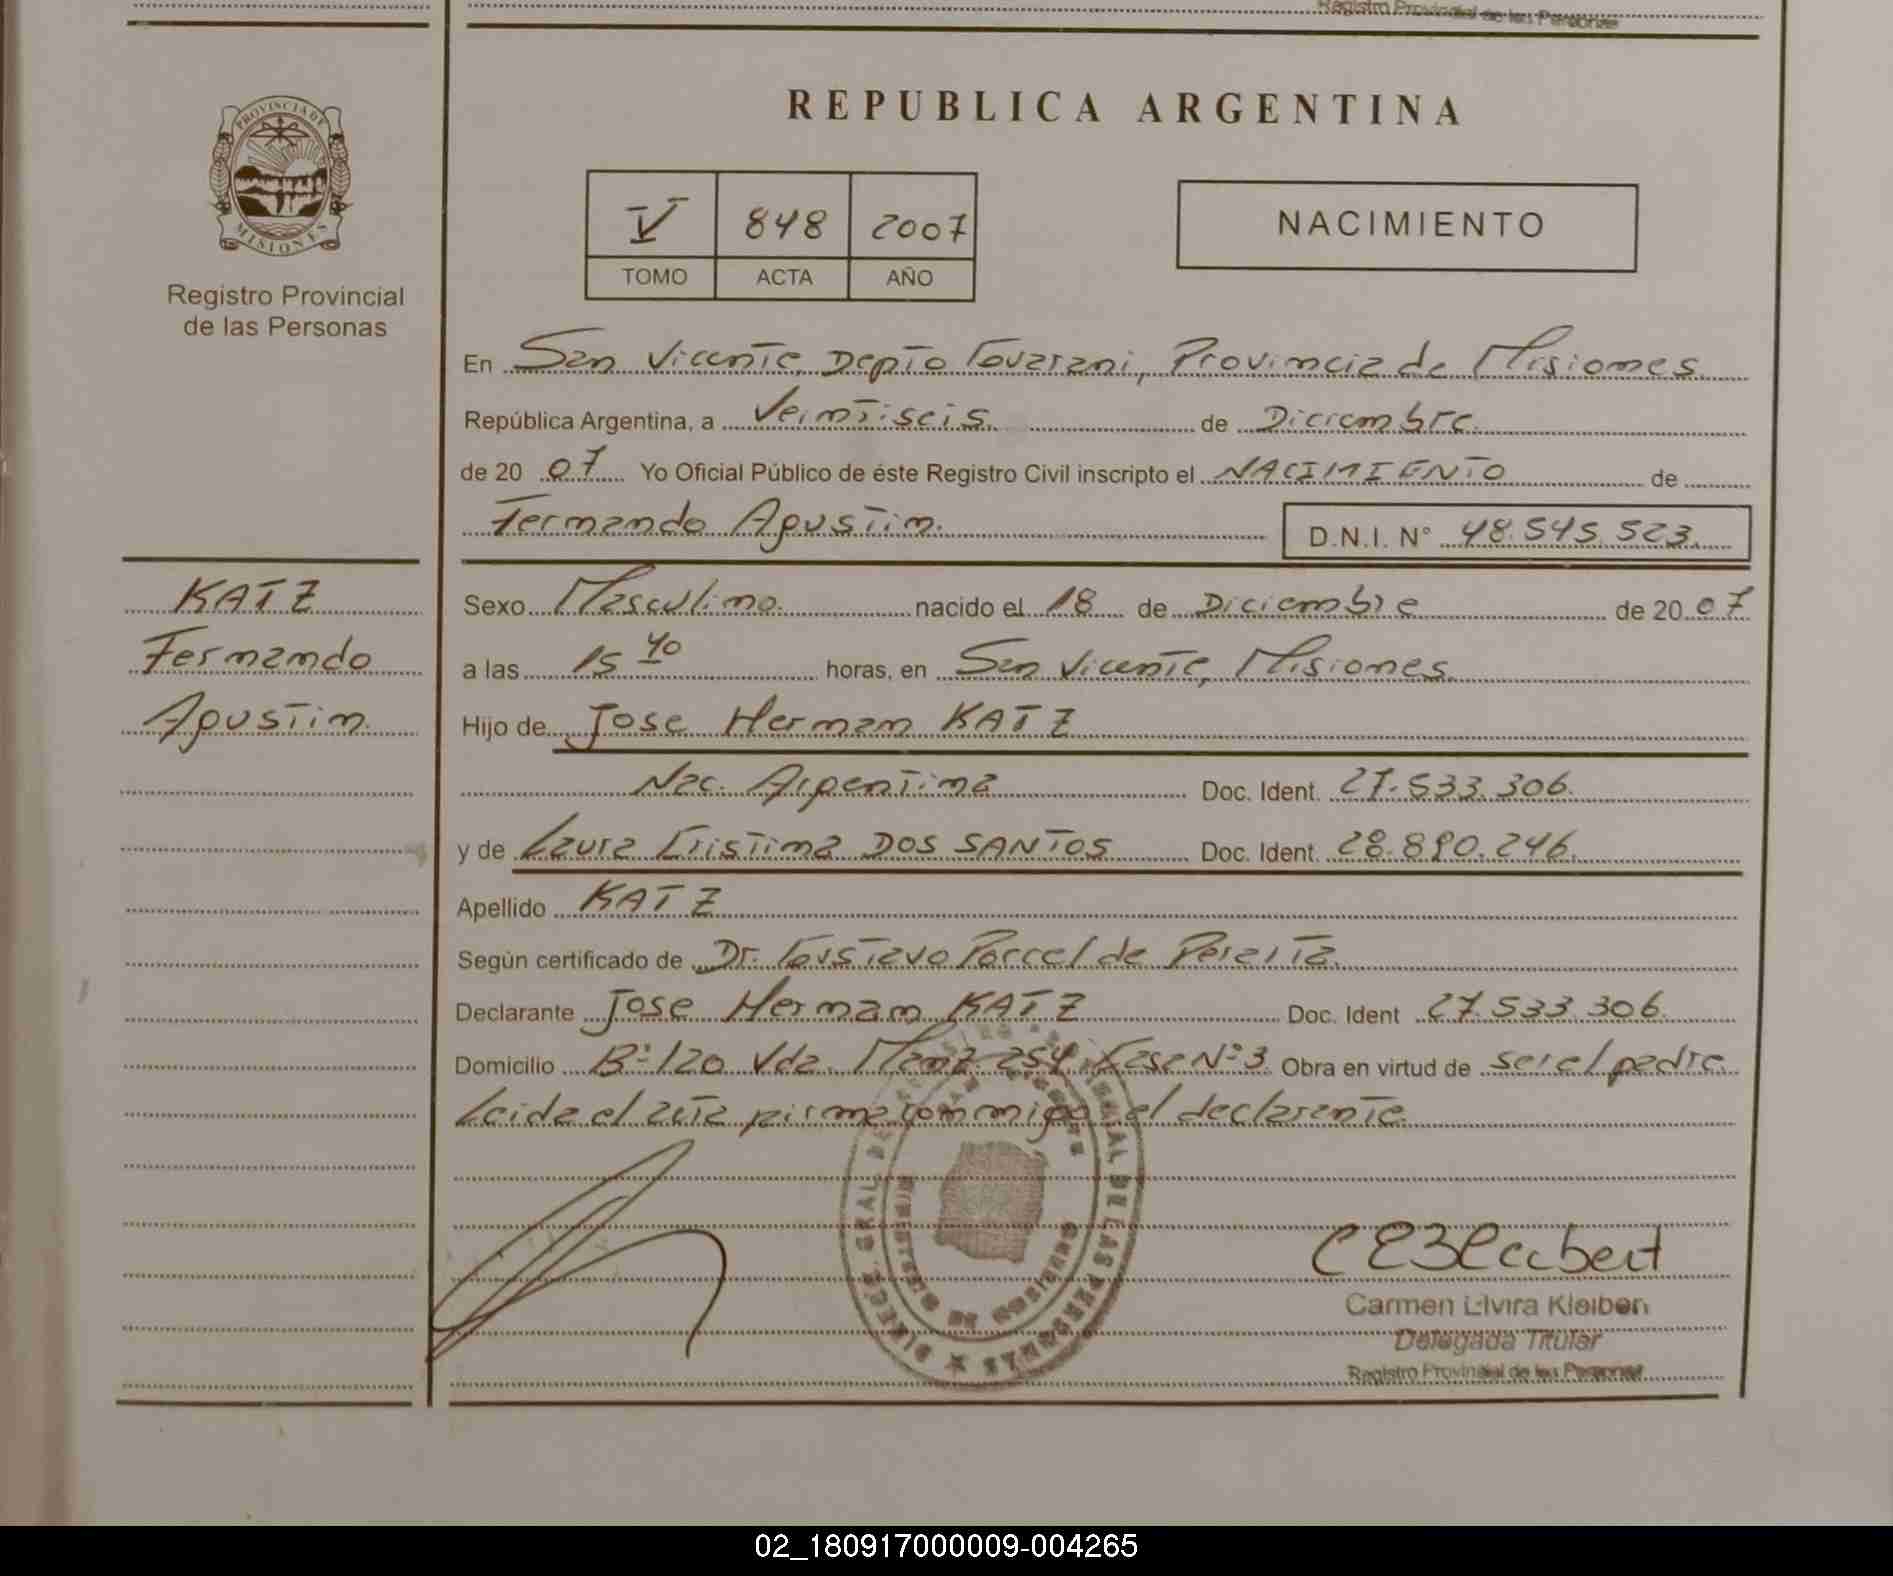 Registro Provincial de las Personas
PROVINCIA DE
MISIONES
Registro Provincial
de las Personas
REPUBLICA ARGENTINA
V 848 2007
TOMO ACTA AÑO
NACIMIENTO
En San Vicente, Depto Guarani, Provincia de Misiones
República Argentina, a Veintiseis de Diciembre
de 20 07 Yo Oficial Público de éste Registro Civil inscripto el NACIMIENTO de
Fernando Agustin. D.N.I. N° 48.545.523.
KATZ
Fernando
Agustin.
Sexo Masculino. nacido el 18 de Diciembre de 20 07
a las 15 40 horas, en San Vicente, Misiones.
Hijo de Jose Hernan KATZ
Nac. Argentina Doc. Ident. 27.533.306.
y de Laura Cristina DOS SANTOS Doc. Ident. 28.890.246.
Apellido KATZ
Según certificado de Dr. Gustavo Porcel de Peralta.
Declarante Jose Hernan KATZ Doc. Ident 27.533.306.
Domicilio B° 120 Vda. Manz. 254 Casa N° 3 Obra en virtud de ser el padre.
Leida el acta firma conmigo el declarante.
Carmen Elvira Kleibert
Delegada Titular
Registro Provincial de las Personas
02_180917000009-004265